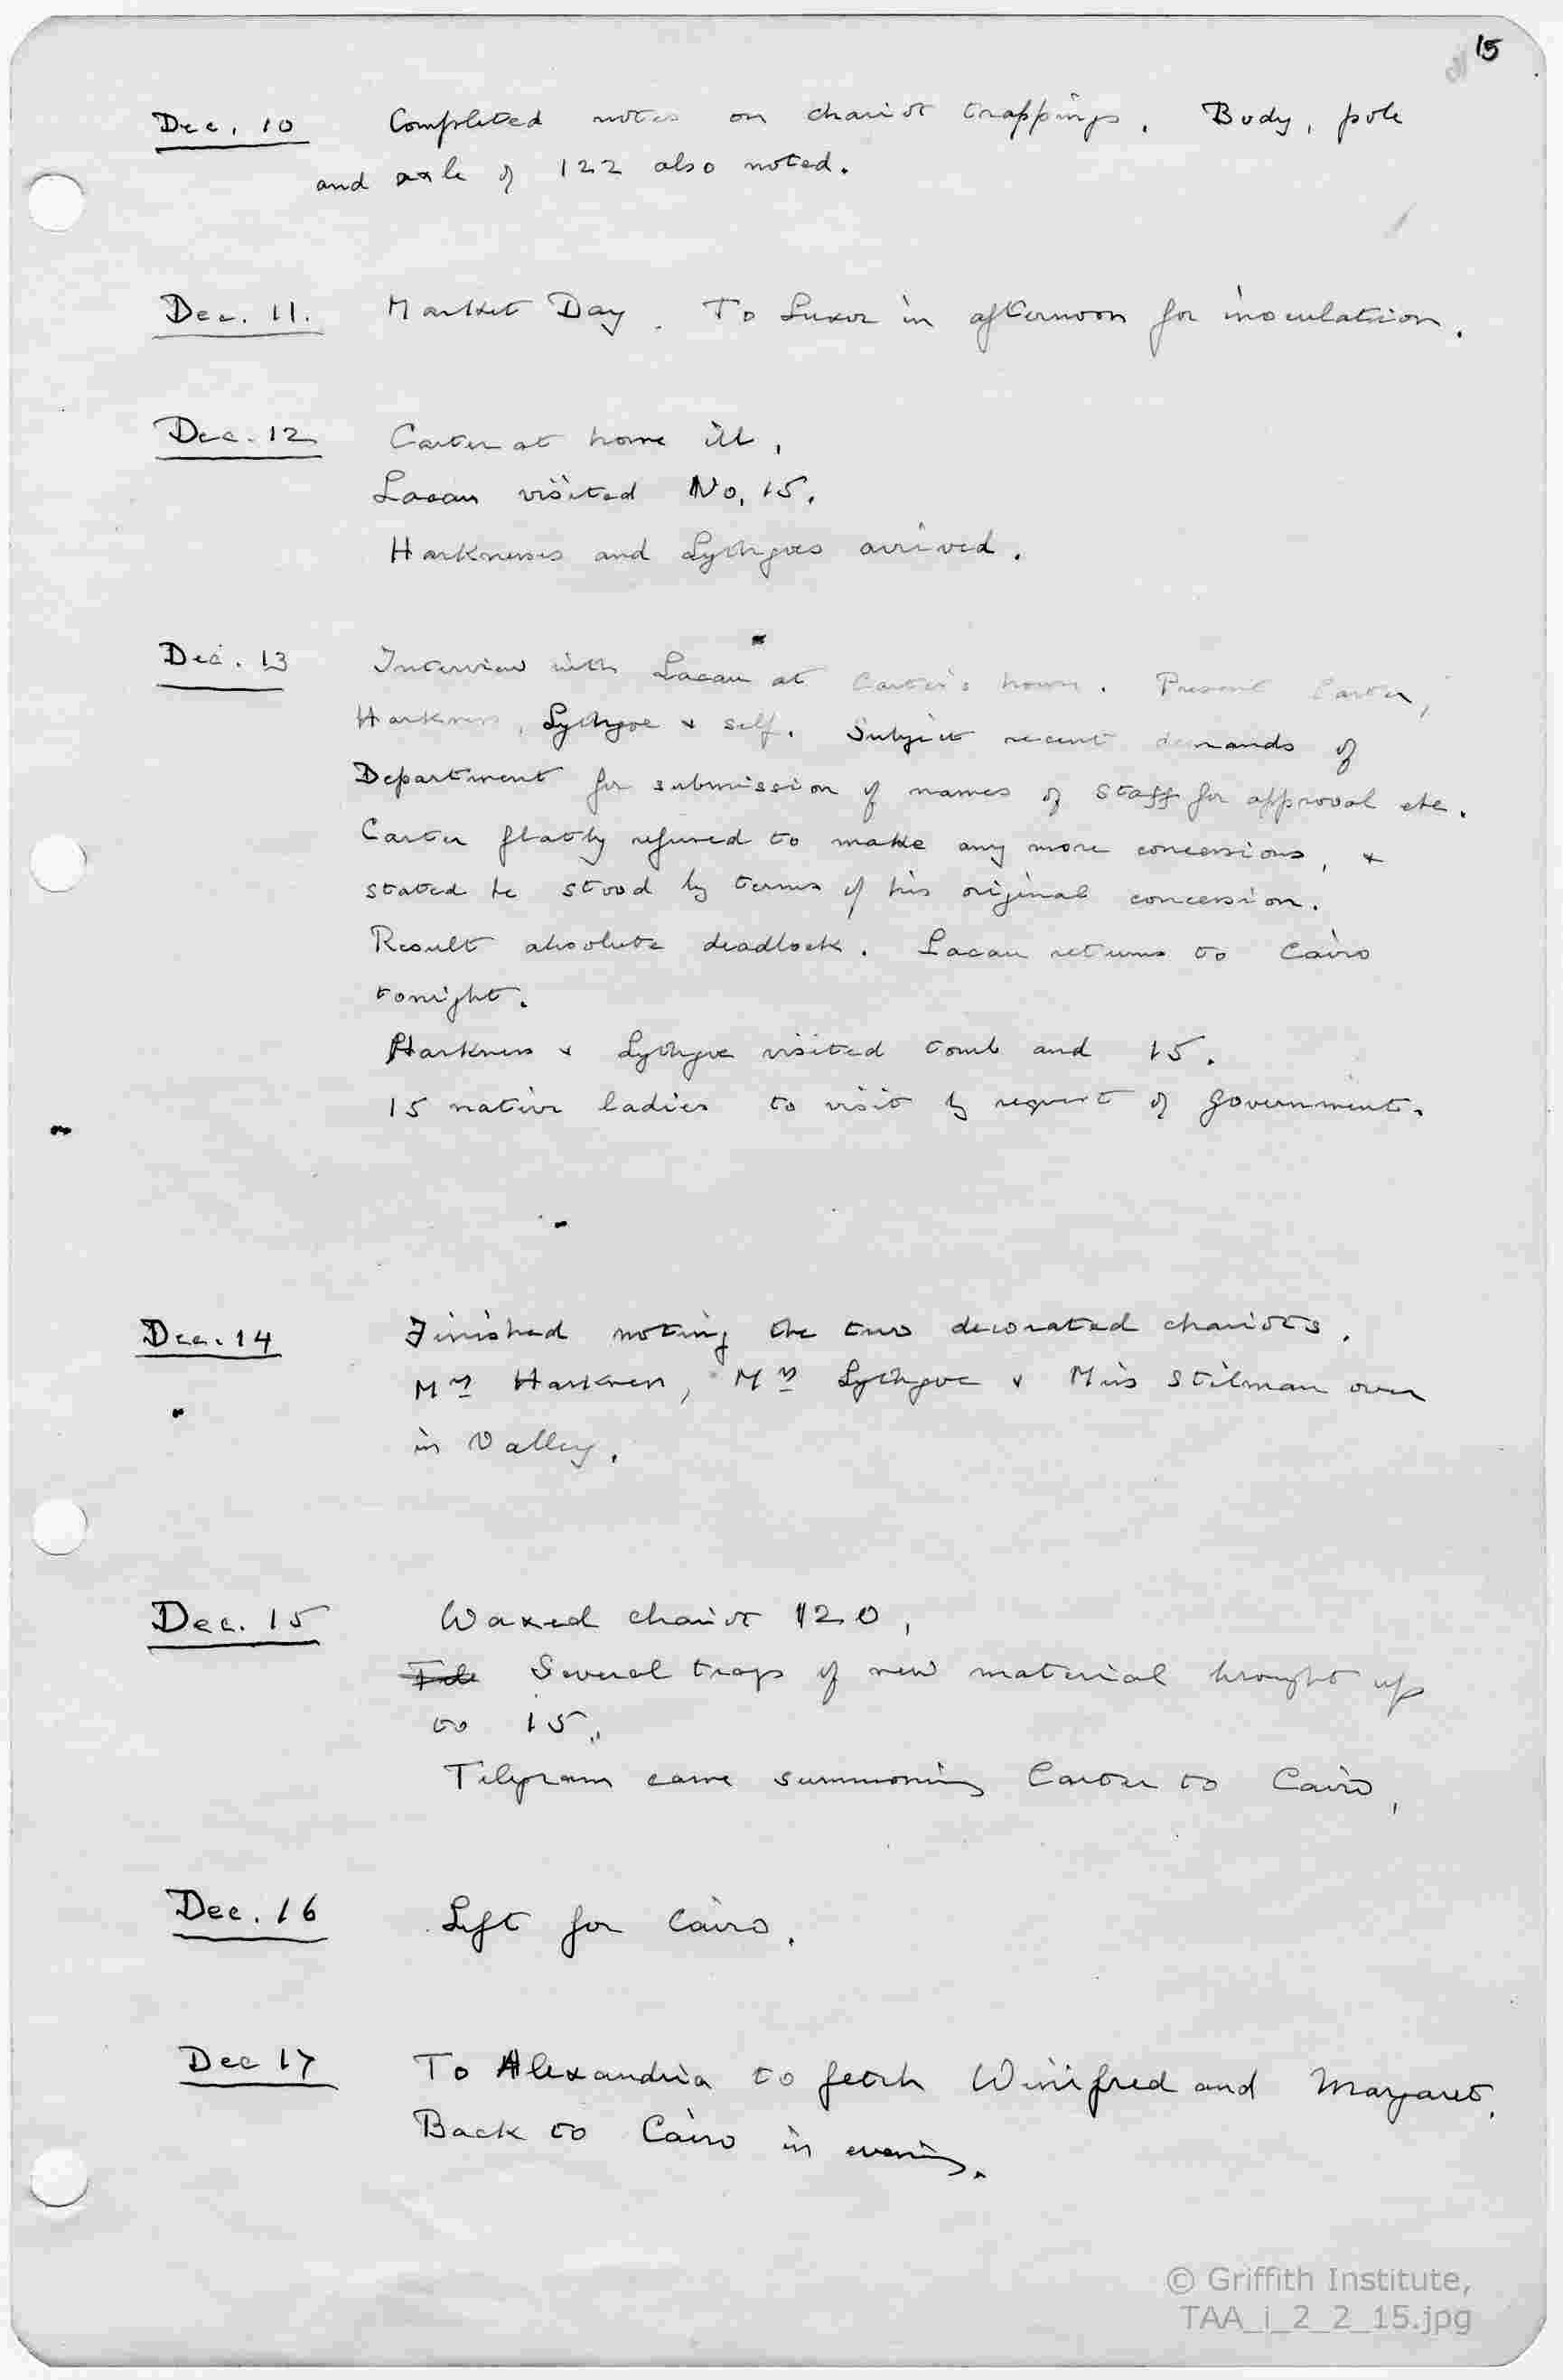 15
Dec. 10 Completed notes on chariot trappings. Body, pole
and axle of 122 also noted.
Dec. 11. Market Day. To Luxor in afternoon for inoculation.
Dec. 12 Carter at home ill.
Lacau visited No. 15.
Harknesses and Lythgoes arrived.
Dec. 13 Interview with Lacau at Carter's house. Present Carter,
Harkness, Lythgoe + self. Subject recent demands of
Department for submission of names of staff for approval etc.
Carter flatly refused to make any more concessions, +
stated he stood by terms of his original concession.
Result absolute deadlock. Lacau returns to Cairo
tonight.
Harkness + Lythgoe visited tomb and 15.
15 native ladies to visit by request of Government.
Dec. 14 Finished noting the two decorated chariots.
Mrs Harkness, Mrs Lythgoe + Miss Stilman over
in Valley.
Dec. 15 Waxed chariot 120.
Several trays of new material brought up
to 15.
Telegram came summoning Carter to Cairo.
Dec. 16 Left for Cairo.
Dec 17 To Alexandria to fetch Winifred and Margaret.
Back to Cairo in evening.
© Griffith Institute,
TAA_i_2_2_15.jpg